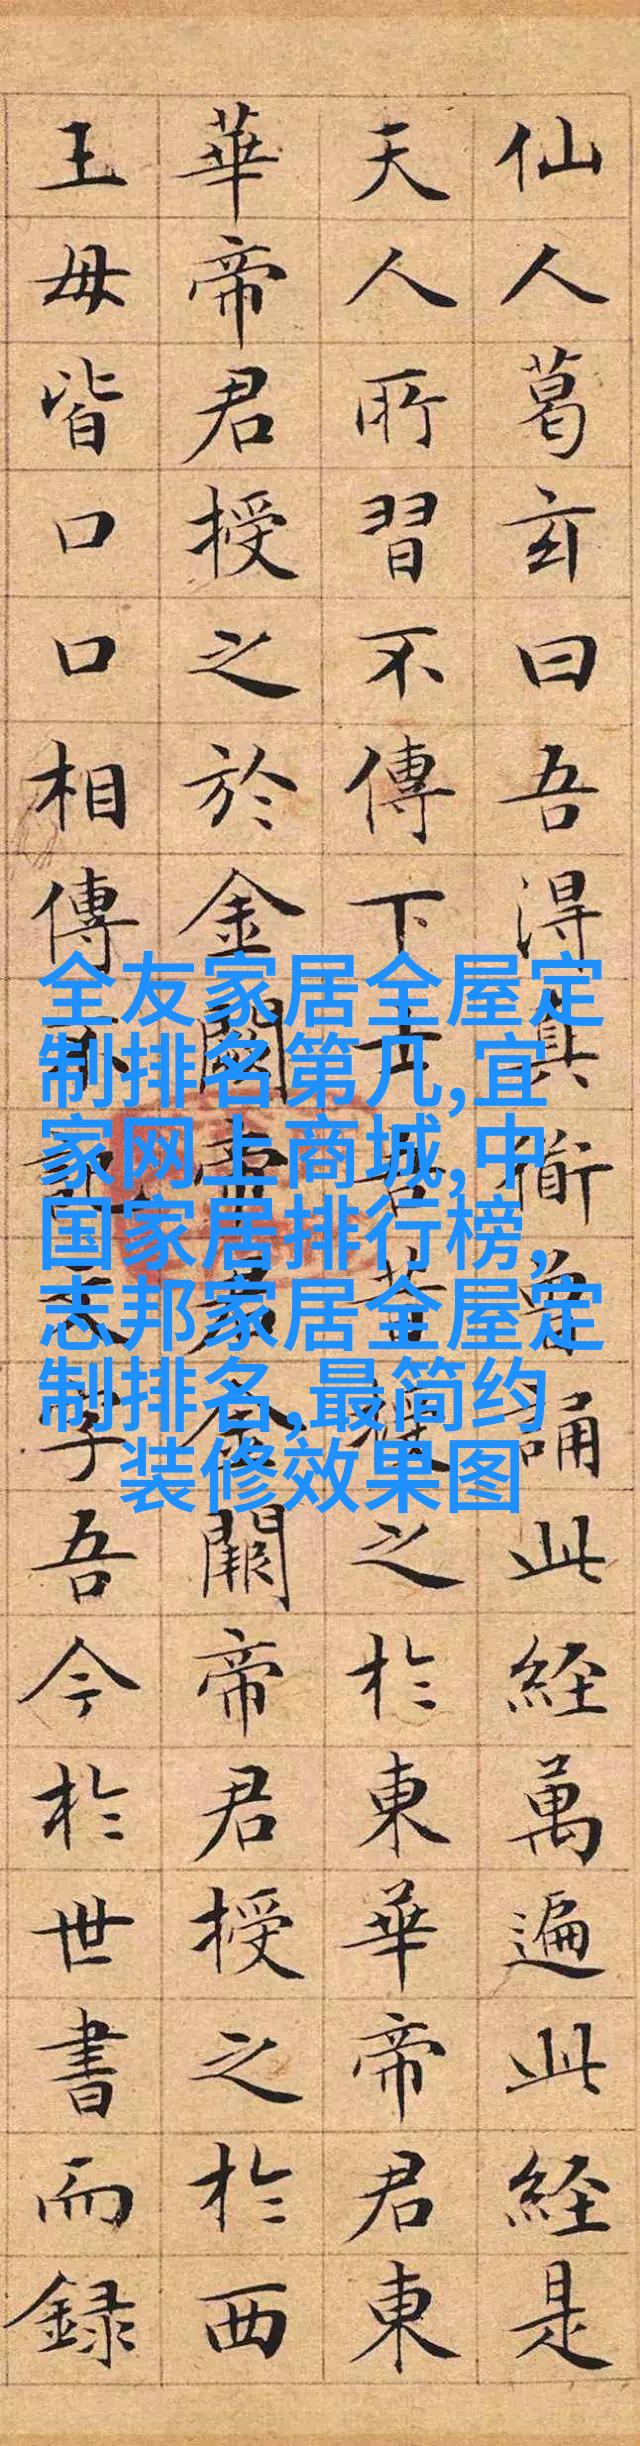 仙人葛玄曰吾淂真衜曽誦此經萬遍此經是
天人所習不傳下士吾昔授之扵東華帝君東
華帝君授之於金闕帝君金闕帝君授之扵西
王母皆口口相傳不記文字吾今扵世書而録
全友家居全屋定
制排名第几,宜
家网上商城,中
国家居排行榜,
志邦家居全屋定
制排名,最简约
装修效果图